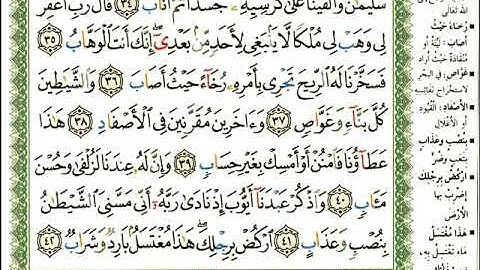 سُلَيْمَٰنَ وَأَلْقَيْنَا عَلَىٰ كُرْسِيِّهِۦ جَسَدًا ثُمَّ أَنَابَ ٣٤ قَالَ رَبِّ ٱغْفِرْ
لِى وَهَبْ لِى مُلْكًا لَّا يَنۢبَغِى لِأَحَدٍ مِّنۢ بَعْدِىٓ إِنَّكَ أَنتَ ٱلْوَهَّابُ ٣٥
فَسَخَّرْنَا لَهُ ٱلرِّيحَ تَجْرِى بِأَمْرِهِۦ رُخَآءً حَيْثُ أَصَابَ ٣٦ وَٱلشَّيَٰطِينَ
كُلَّ بَنَّآءٍ وَغَوَّاصٍ ٣٧ وَءَاخَرِينَ مُقَرَّنِينَ فِى ٱلْأَصْفَادِ ٣٨ هَٰذَا
عَطَآؤُنَا فَٱمْنُنْ أَوْ أَمْسِكْ بِغَيْرِ حِسَابٍ ٣٩ وَإِنَّ لَهُۥ عِندَنَا لَزُلْفَىٰ وَحُسْنَ
مَـَٔابٍ ٤٠ وَٱذْكُرْ عَبْدَنَآ أَيُّوبَ إِذْ نَادَىٰ رَبَّهُۥٓ أَنِّى مَسَّنِىَ ٱلشَّيْطَٰنُ
بِنُصْبٍ وَعَذَابٍ ٤١ ٱرْكُضْ بِرِجْلِكَ هَٰذَا مُغْتَسَلٌۢ بَارِدٌ وَشَرَابٌ ٤٢
اللّٰه تعالى
رُخَاءً حَيْثُ
أَصَابَ : لَيِّنَةً أو
مُنْقَادَةً حَيْثُ أَرَادَ
غَوَّاصٍ : فِي البَحْرِ
لاستخراج نفائسِهِ
الأَصْفَادِ : القُيُودِ
أو الأغْلالِ
بِنُصْبٍ وَعَذَابٍ
بِتَعَبٍ وضُرٍّ
ارْكُضْ بِرِجْلِكَ
اضْرِبْ بها
الأرْضَ
هَذَا مُغْتَسَلٌ